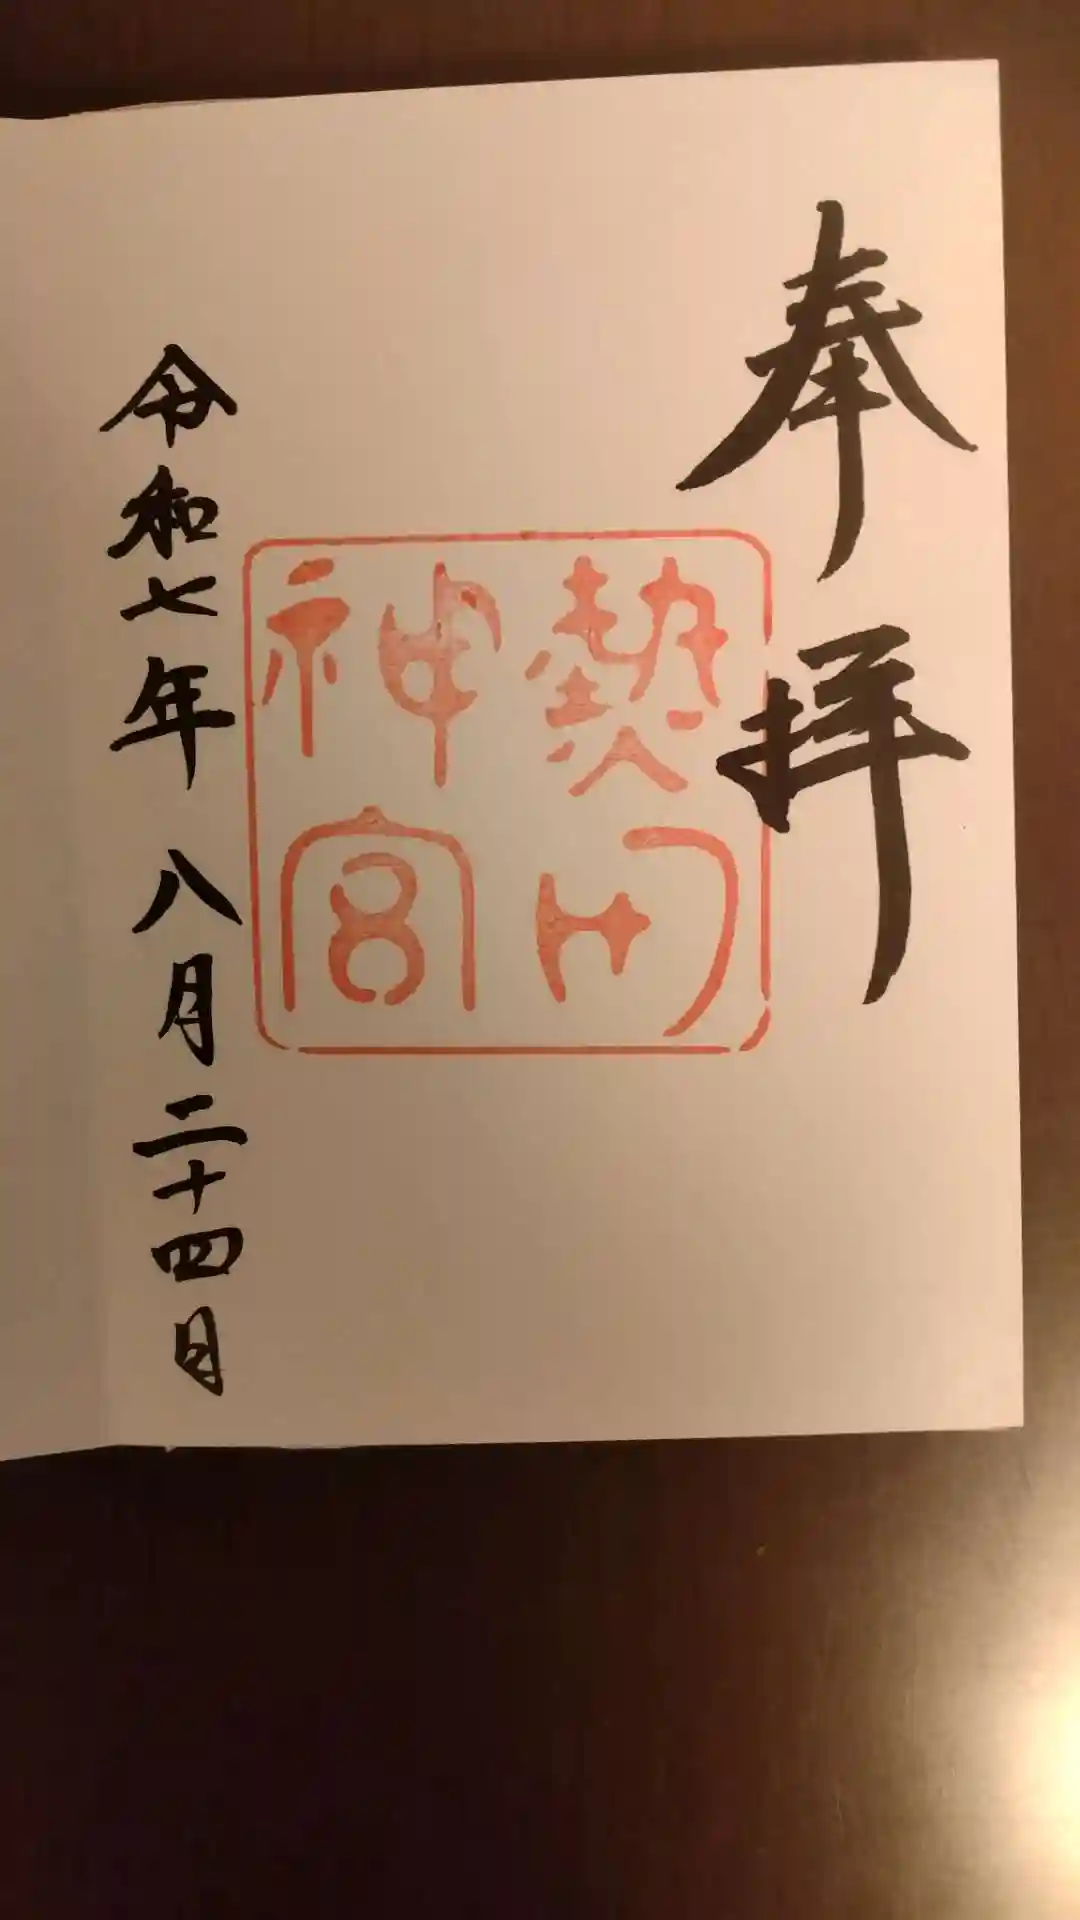 奉拝
熱田
神宮
令和七年八月二十四日